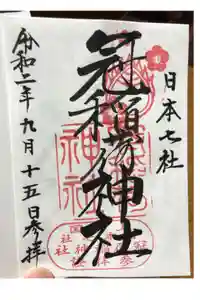 日本七社
冠稲荷神社
令和二年九月十五日参拝